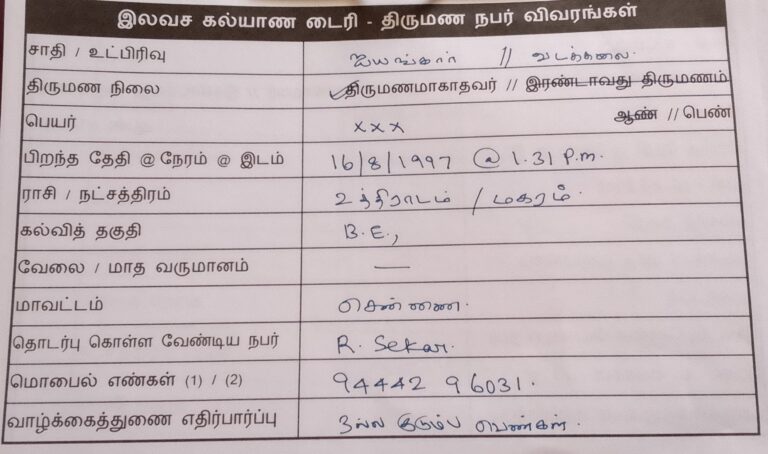 இலவச கல்யாண டைரி - திருமண நபர் விவரங்கள்
சாதி / உட்பிரிவு ஐயங்கார் // வடகலை.
திருமண நிலை ✓திருமணமாகாதவர் // இரண்டாவது திருமணம்
பெயர் x x x ஆண் // பெண்
பிறந்த தேதி @ நேரம் @ இடம் 16/8/1997 @ 1.31 P.m.
ராசி / நட்சத்திரம் உத்திராடம் / மகரம்.
கல்வித் தகுதி B.E.,
வேலை / மாத வருமானம் —
மாவட்டம் சென்னை.
தொடர்பு கொள்ள வேண்டிய நபர் R. Sekar.
மொபைல் எண்கள் (1) / (2) 94442 96031.
வாழ்க்கைத்துணை எதிர்பார்ப்பு நல்ல குடும்ப பெண்கள்.